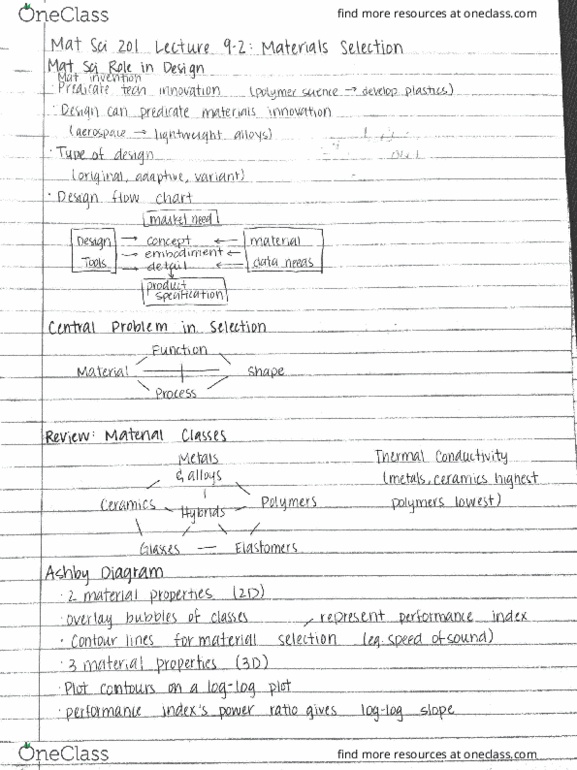 OneClass
find more resources at oneclass.com
Mat Sci 201 Lecture 9-2: Materials Selection
Mat Sci Role in Design
Mat invention
· Predicate tech innovation (polymer science → develop plastics)
· Design can predicate materials innovation
(aerospace → lightweight alloys)
· Type of design
(original, adaptive, variant)
· Design flow chart
market need
Design → concept ← material
→ embodiment ←
Tools → detail ← data needs
product
specification
Central Problem in Selection
Function
Material Shape
Process
Review: Material Classes
Metals Thermal Conductivity
& alloys (metals, ceramics highest
Ceramics Hybrids Polymers polymers lowest)
Glasses — Elastomers
Ashby Diagram
· 2 material properties (2D)
· overlay bubbles of classes represent performance index
· Contour lines for material selection (eg. speed of sound)
· 3 material properties (3D)
· Plot contours on a log-log plot
· performance index's power ratio gives log-log slope
OneClass
find more resources at oneclass.com